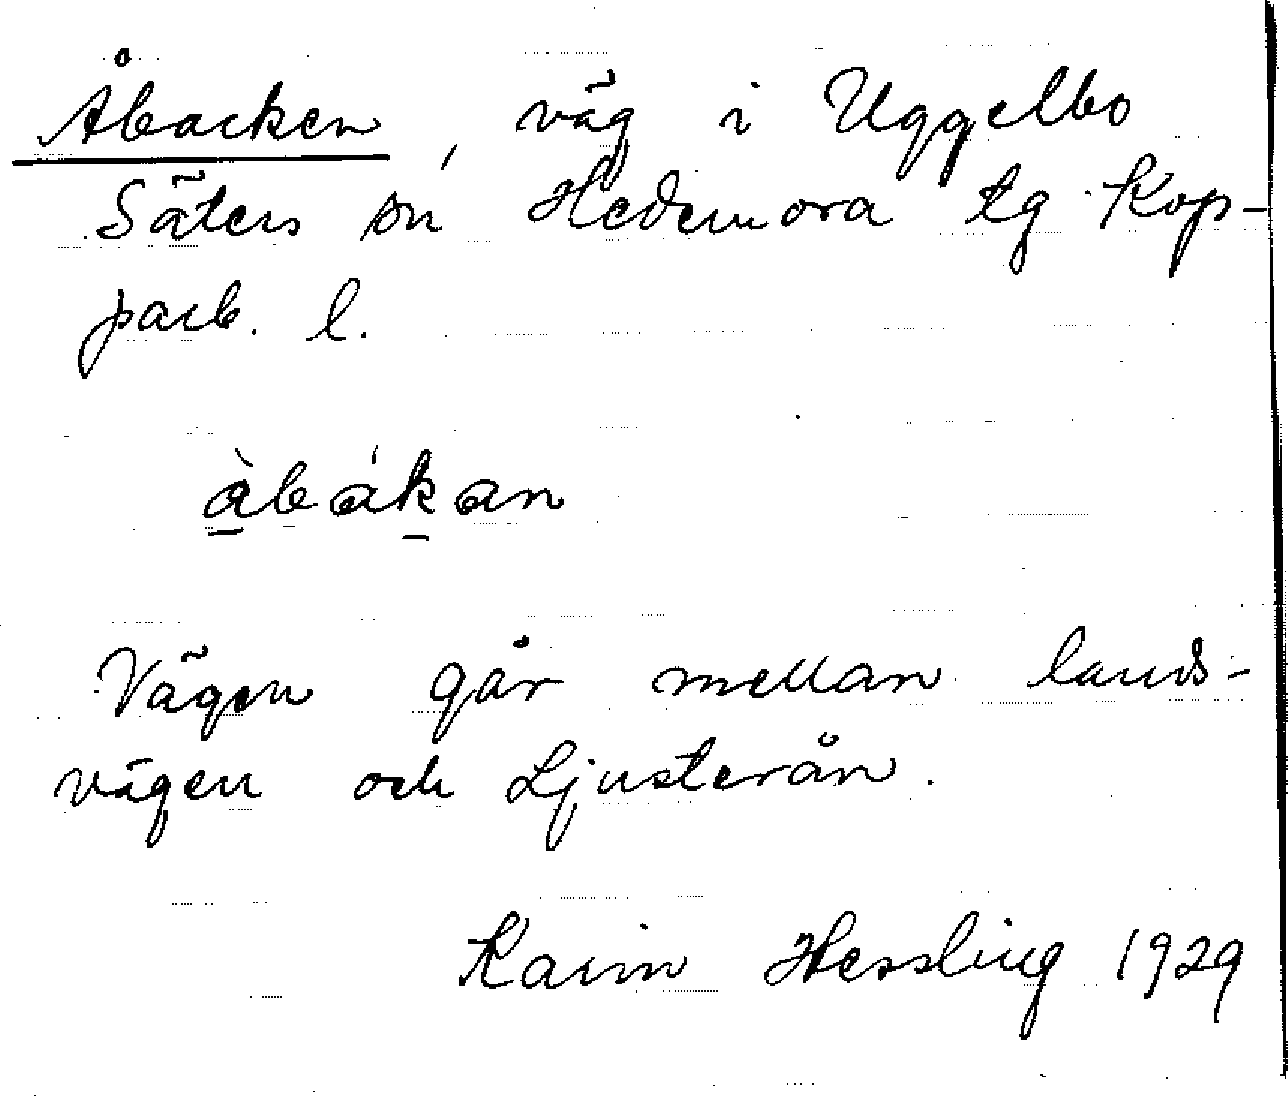 Åbacken, väg i Uggelbo
Säters sn Hedemora tg Kop-
parb. l.
àbákan
Vägen går mellan lands-
vägen och Ljusterån.
Karin Hessling 1929